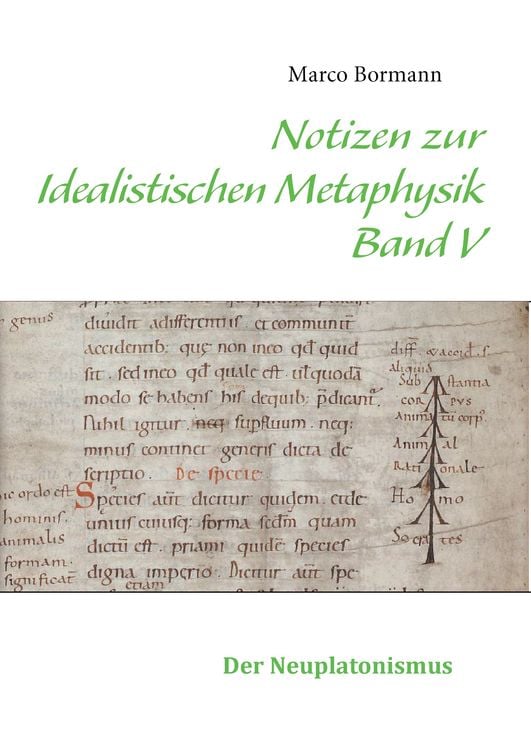 Marco Bormann
Notizen zur
Idealistischen Metaphysik
Band V
genus
diuidit adifferentiis . et communit̅
accidentib: quę non ineo qd̅ quid
sit . sed ineo qd̅ quale est . ut̅ quodā
modo se habens his dequib: p̅dicant᷑.
Nihil igitur neq supfluum . neq:
minus continet generis dicta de
scriptio . De specie .
Species aūt dicitur quidem et de
unius cuiusq: forma sedm̅ quam
dictū est . priami quidē species
digna imperio . Dicitur aūt spe-
etiam
ordo est
hominis.
animalis
formam.
significat̅
diff̅. & accid . s
aliquis
Sub stantia
cor pus
Anima tū corp᷒.
Anim al
Rati onale
Ho mo
Socra tes
Der Neuplatonismus